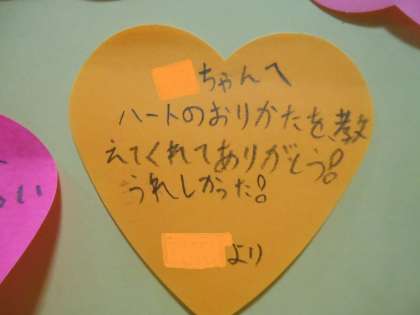 ちゃんへ
ハートのおりかたを、教
えてくれてありがとう!
うれしかった!
より